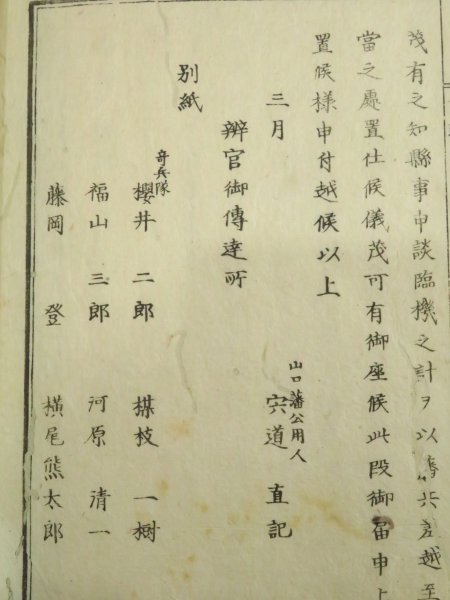 茂有之知縣事申談臨機之計ヲ以藩共差越至
當之處置仕候儀茂可有御座候此段御届申上
置候様申付越候以上
三月
山口藩公用人
宍道直記
辨官御傳達所
別紙
奇兵隊
櫻井二郎 楳枝一樹
福山三郎 河原清一
藤岡登 横尾熊太郎